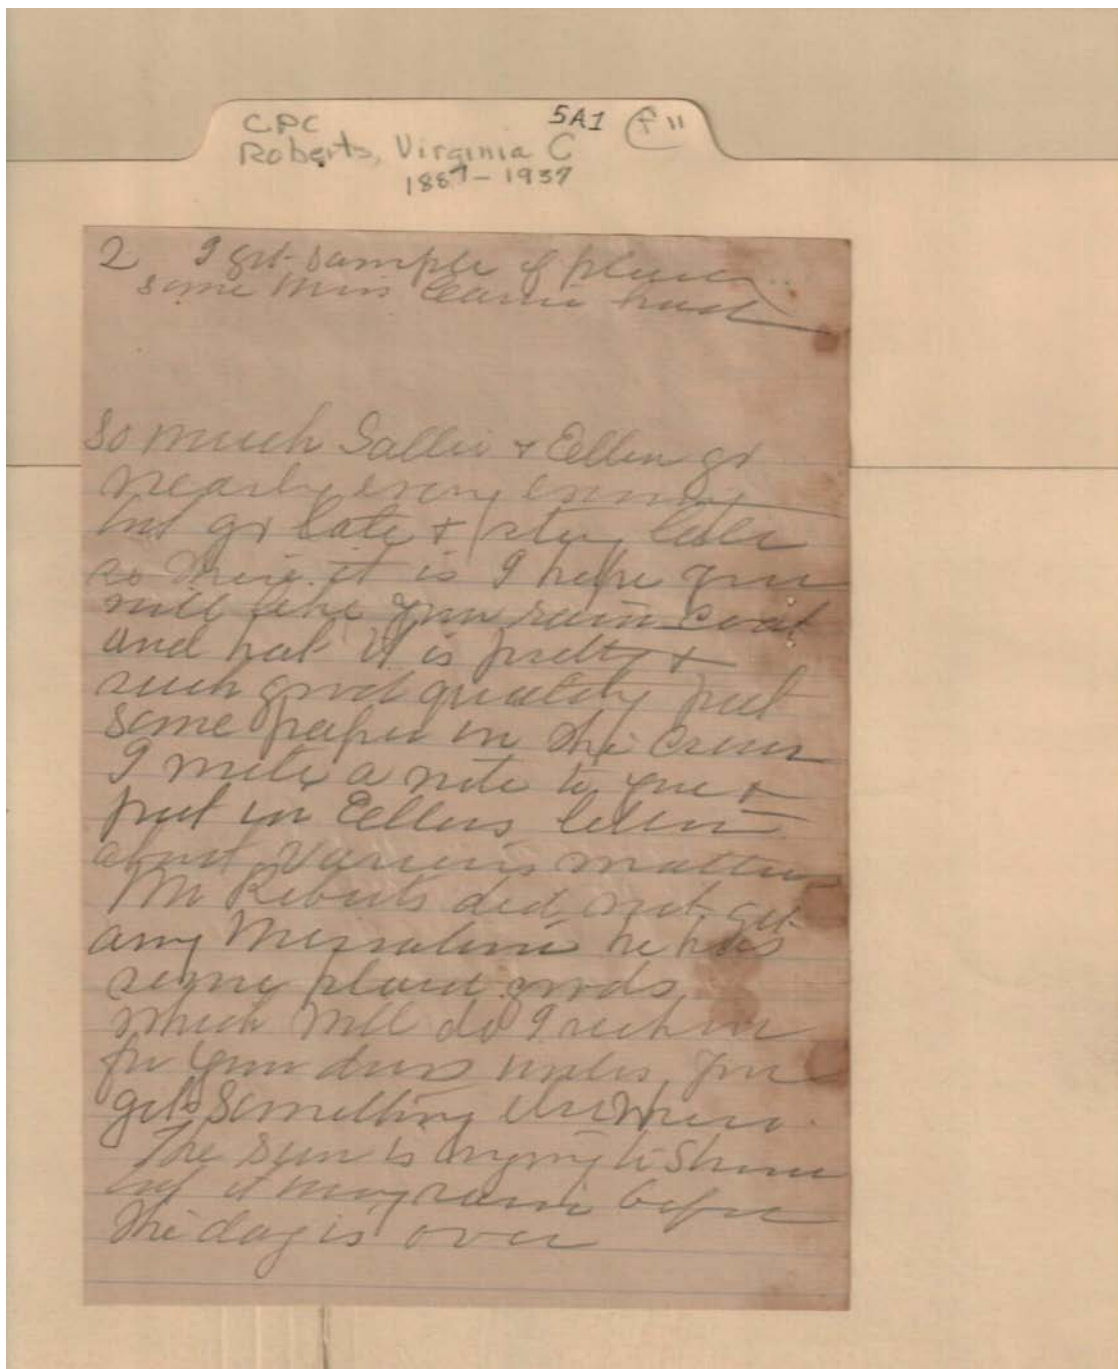 CPC 5A1 f 11
Roberts, Virginia C
1887-1937
2 I got sample of
some Miss had
so much Sallie & Ellen go
nearly every evening
but go late & stay late
so there it is I hope you
will like your rain coat
and hat it is pretty &
such good quality put
some paper in the crown
I wrote a note to you &
put in Ellens letter
about various matters
Mr Roberts did not get
any Messaline he has
some plaid goods
which will do I reckon
for your dress unless you
get something elsewhere.
The sun is trying to shine
but it may rain before
the day is over